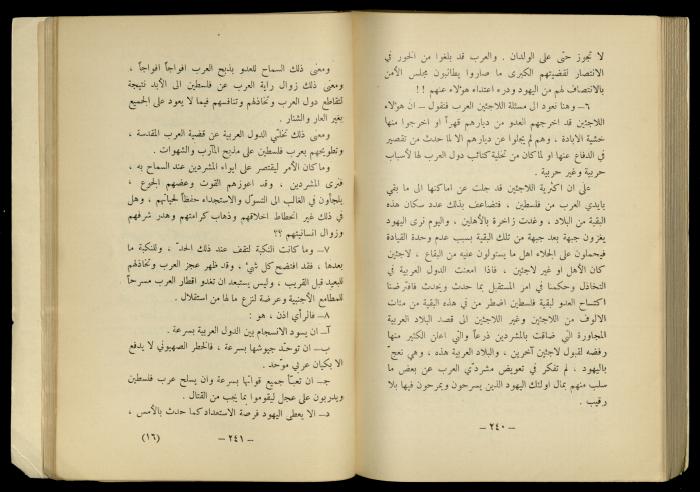 لا تجوز حتى على الولدان . والعرب قد بلغوا من الخور في
الانتصار لقضيتهم الكبرى ما صاروا يطالبون مجلس الأمن
بالانتصاف لهم من اليهود ودرء اعتداء هؤلاء عنهم !!
٦- وهنا نعود الى مسئلة اللاجئين العرب فنقول - ان هؤلاء
اللاجئين قد اخرجهم العدو من ديارهم قهراً او اخرجوا منها
خشية الابادة ، وهم لم يجلوا عن ديارهم الا لما حدث من تقصير
في الدفاع عنها او لما كان من تخلية كتائب دول العرب لها لأسباب
حربية وغير حربية .
على ان اكثرية اللاجئين قد جلت عن اماكنها الى ما بقي
بايدي العرب من فلسطين ، فتضاعف بذلك عدد سكان هذه
البقية من البلاد ، وغدت زاخرة بالأهلين ، واليوم ترى اليهود
يغزون جبهة بعد جبهة من تلك البقية بسبب عدم وحدة القيادة
فيحملون على الجلاء اهل ما يستولون عليه من البقاع ، لاجئين
كان الأهل او غير لاجئين . فاذا امعنت الدول العربية في
التخاذل وحكمنا في امر المستقبل بما حدث ويحدث فافترضنا
اكتساح العدو لبقية فلسطين اضطر من في هذه البقية من مئات
الالوف من اللاجئين وغير اللاجئين الى قصد البلاد العربية
المجاورة التي ضاقت بالمشردين ذرعاً والتي اعلن الكثير منها
رفضه لقبول لاجئين آخرين ، والبلاد العربية هذه ، وهي تعج
باليهود ، لم تفكر في تعويض مشردي العرب عن بعض ما
سلب منهم بمال اولئك اليهود الذين يسرحون ويمرحون فيها بلا
رقيب .
- ٢٤٠ -
ومعنى ذلك السماح للعدو بذبح العرب افواجاً افواجاً ،
ومعنى ذلك زوال راية العرب عن فلسطين الى الأبد نتيجة
لتقاطع دول العرب وتخاذلهم وتنافسهم فيما لا يعود على الجميع
بغير العار والشنار .
ومعنى ذلك تخلّي الدول العربية عن قضية العرب المقدسة ،
وتطويحهم بعرب فلسطين على مذبح المآرب والشهوات .
وما كان الأمر ليقتصر على ايواء المشردين عند السماح به ،
فترى المشردين ، وقد اعوزهم القوت وعضهم الجوع ،
يلجأون في الغالب الى التسوّل والاستجداء حفظاً لحياتهم ، وهل
في ذلك غير انحطاط اخلاقهم وذهاب كرامتهم وهدر شرفهم
وزوال انسانيتهم ؟؟
٧- وما كانت النكبة لتقف عند ذلك الحدّ ، وللنكبة ما
بعدها ، فقد افتضح كل شيء ، وقد ظهر عجز العرب وتخاذلهم
للبعيد قبل القريب ، وليس يستبعد ان تغدو اقطار العرب مسرحاً
للمطامع الأجنبية وعرضة لنزع ما لها من استقلال .
٨- فالرأي اذن ، هو :
آ- ان يسود الانسجام بين الدول العربية بسرعة .
ب- ان توحّد جيوشها بسرعة ، فالخطر الصهيوني لا يدفع
الا بكيان عربي موحّد .
جـ- ان تعبأ جميع قواتها بسرعة وان يسلح عرب فلسطين
ويدربون على عجل ليقوموا بما يجب من القتال .
د- الا يعطى اليهود فرصة الاستعداد كما حدث بالأمس ،
- ٢٤١ -
(١٦)